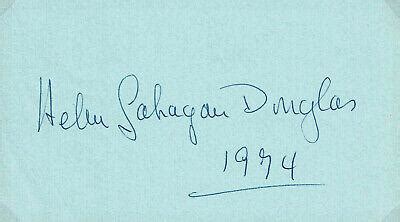 Helen Gahagan Douglas
1974